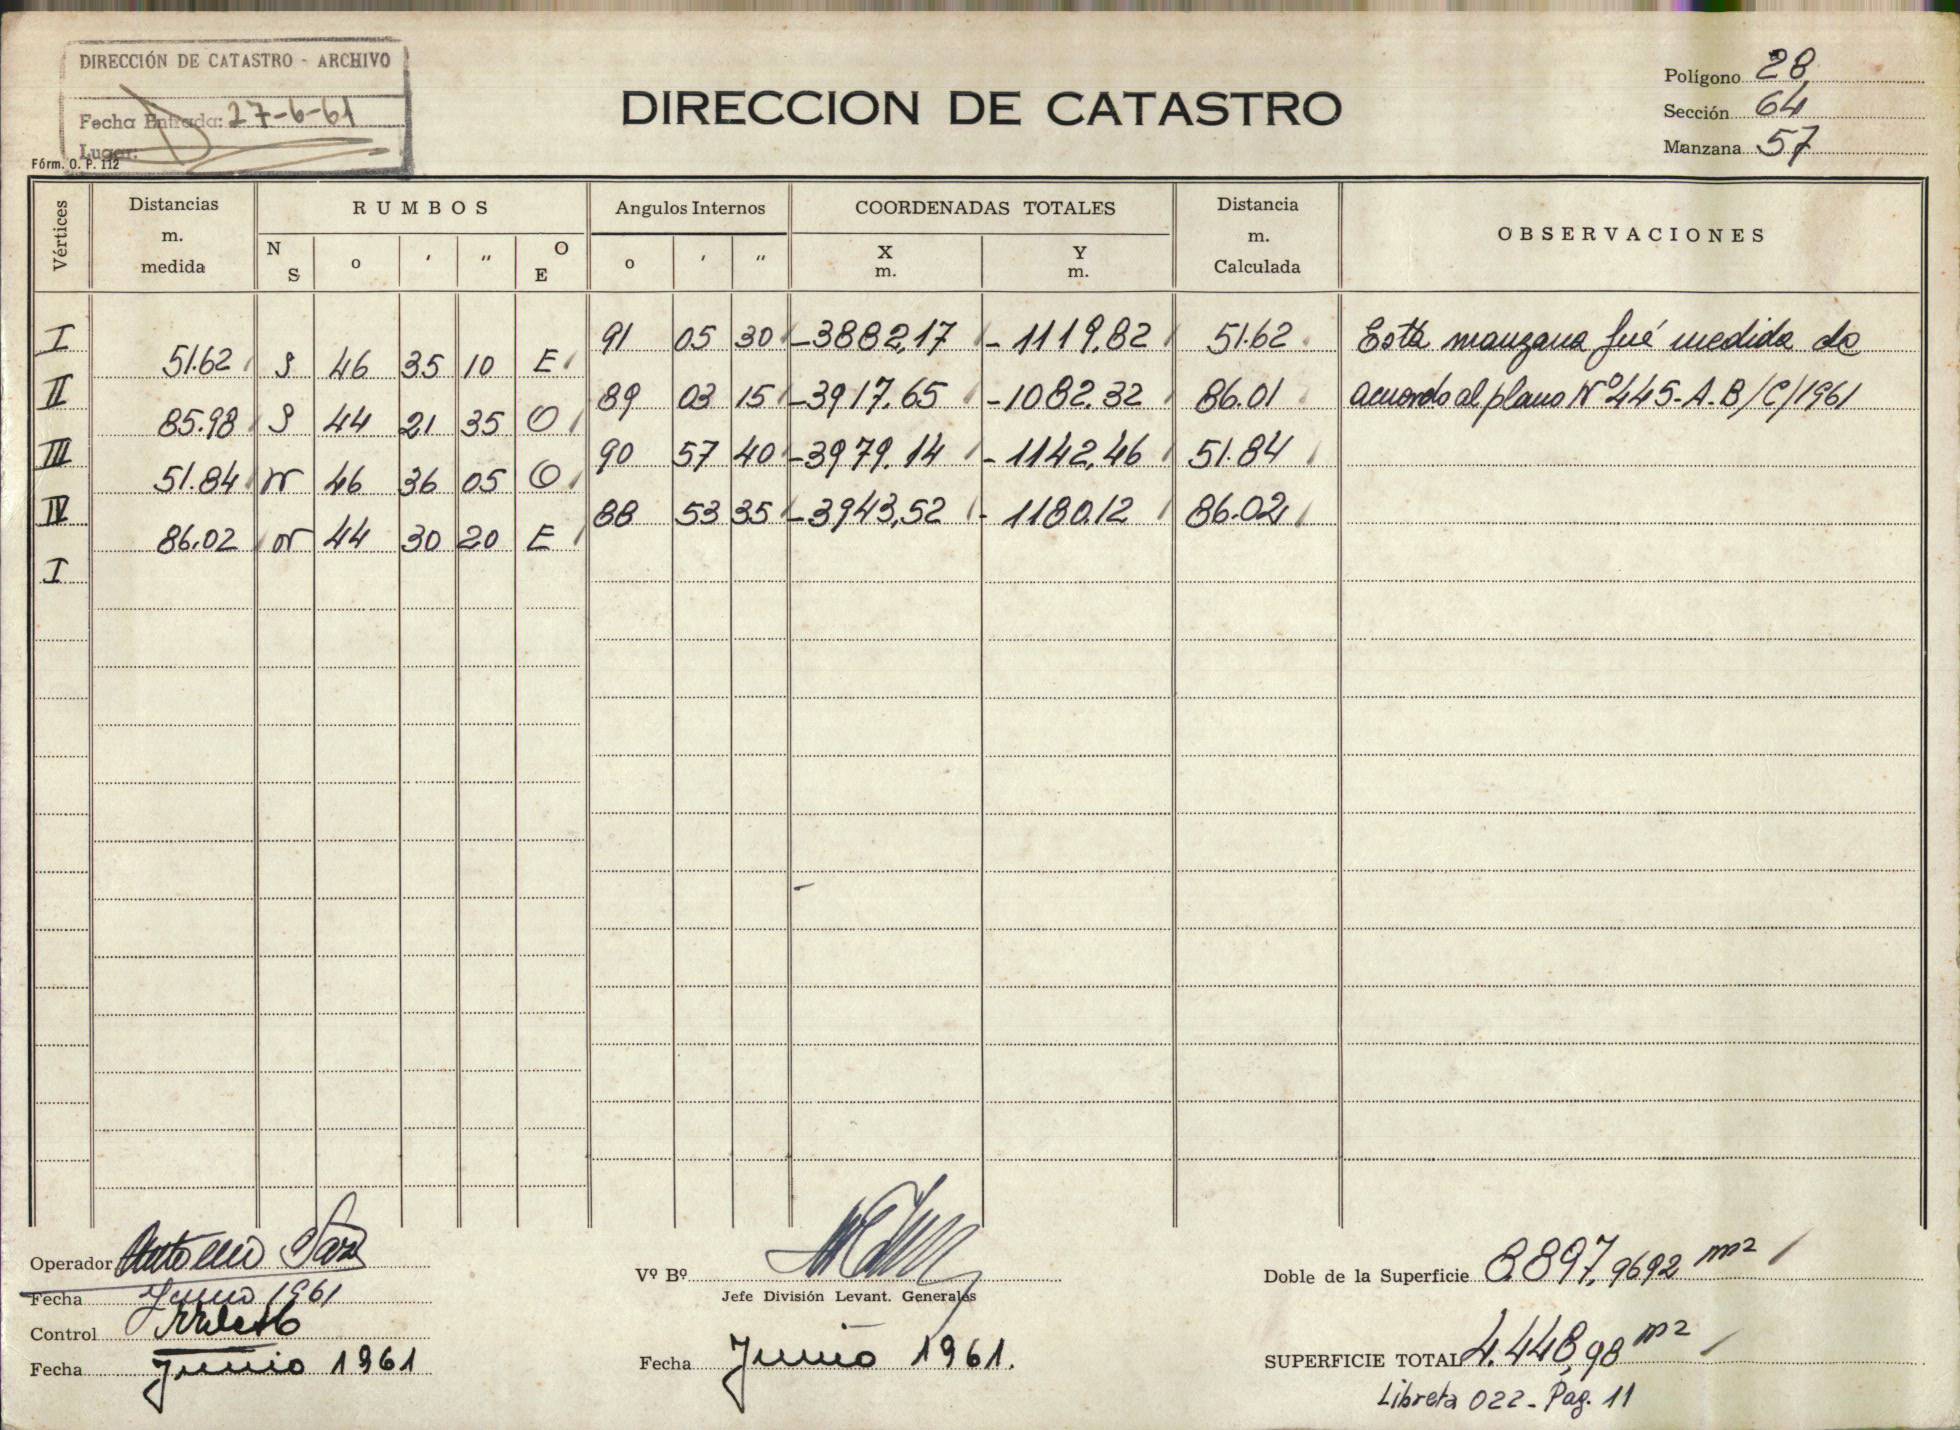 DIRECCIÓN DE CATASTRO - ARCHIVO
Fecha Entrada: 27-6-61
Lugar:
Fórm. O. P. 112
DIRECCION DE CATASTRO
Polígono 28
Sección 64
Manzana 57
Vértices Distancias m. medida RUMBOS Angulos Internos COORDENADAS TOTALES Distancia m. Calculada OBSERVACIONES
N S o ′ ″ O E o ′ ″ X m. Y m.
I 91 05 30 -3882,17 -1119,82 51.62 Esta manzana fué medida de
51.62 S 46 35 10 E
II 89 03 15 -3917,65 -1082,32 86.01 acuerdo al plano Nº 445-A-B/C/1961
85.98 S 44 21 35 O
III 90 57 40 -3979,14 -1142,46 51.84
51.84 N 46 36 05 O
IV 88 53 35 -3943,52 -1180,12 86.02
86.02 N 44 30 20 E
I
Operador Antonio
Fecha Junio 1961
Control
Fecha Junio 1961
Vº Bº
Jefe División Levant. Generales
Fecha Junio 1961.
Doble de la Superficie 8.897,9692 m2
SUPERFICIE TOTAL 4.448,98 m2
Libreta 022 - Pag. 11